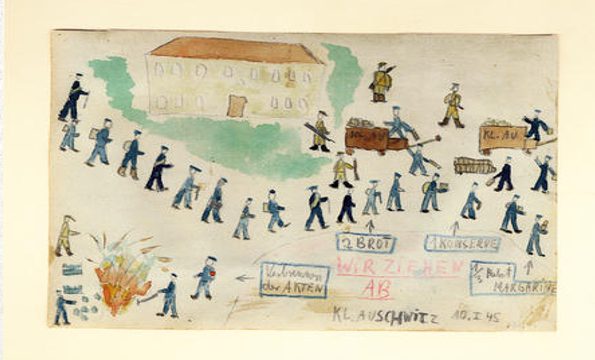 KL. AU.
KL. AU.
2 BROT
1 KONSERVE
1/3 Paket
MARGARINE
WIR ZIEHEN
AB
Verbrennen
der AKTEN
KL. AUSCHWITZ 10.I 45